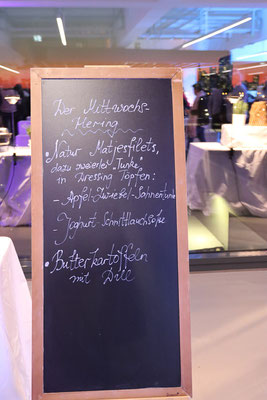 Der Mittwochs-
Hering
• Natur Matjesfilets,
dazu zweierlei "Tunke"
in Dressing Töpfen:
- Apfel-Zwiebel-Sahnetunke
- Joghurt Schnittlauchsoße
• Butterkartoffeln
mit Dill